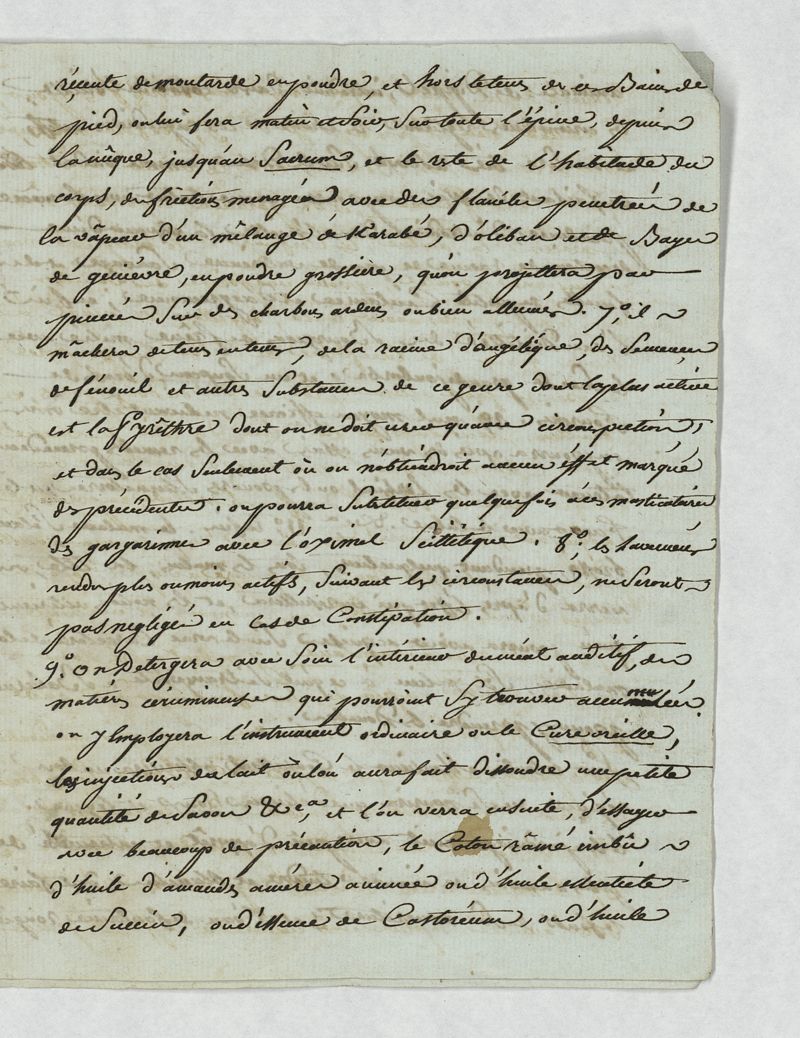 récente de moutarde en poudre, et hors le tems de ces Bains de
pied, on lui fera matin et Soir, Sur toute l'épine, depuis
la nûque, jusqu'au Sacrum, et le reste de l'habitude du
corps, des frictions menagées avec des flanéles penetrées de
la vâpeur d'un mêlange de Karabé, d'oliban et de Bayes
de geniévre, en poudre grossière, qu'on projettera par
pincées Sur des charbons ardens ou bien allumés. 7.º il
mâchera de tems en tems, de la racine d'angélique, des Semences
de fénouil et autres Substances de ce genre dont la plus active
est la Pyrêthre dont on ne doit user qu'avec circonspéction,
et dans le cas Seulement où on n'obtiendroit aucun éffet marqué
des précédentes. on pourra Substituer quelquefois à ces masticatoires
des gargarismes avec l'oximel Scillitique. 8.º, les lavemens
rendus plus ou moins actifs, Suivant les circonstances, ne Seront
pas negligés en cas de Constipation.
9.º On Detergera avec Soin l'intérieur du méat auditif, des
matières cérumineuses qui pourroint S'y trouver accumulées.
on y Employera l'instrument ordinaire ou le Cure oreille,
les injections de lait où l'on aura fait dissoudre une petite
quantité de Savon &c.ª, et l'on verra ensuite, d'essayer
avec beaucoup de précaution, le Coton râmé imbû
d'huile d'amandes amères animée ou d'huile essentiele
de Succin, ou d'essence de Castoréum, ou d'huile